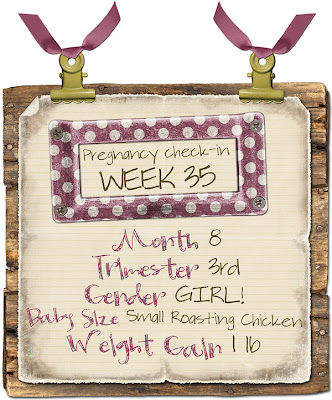 Pregnancy check-in
WEEK 35
Month 8
Trimester 3rd
Gender GIRL!
Baby Size Small Roasting Chicken
Weight Gain 1 lb